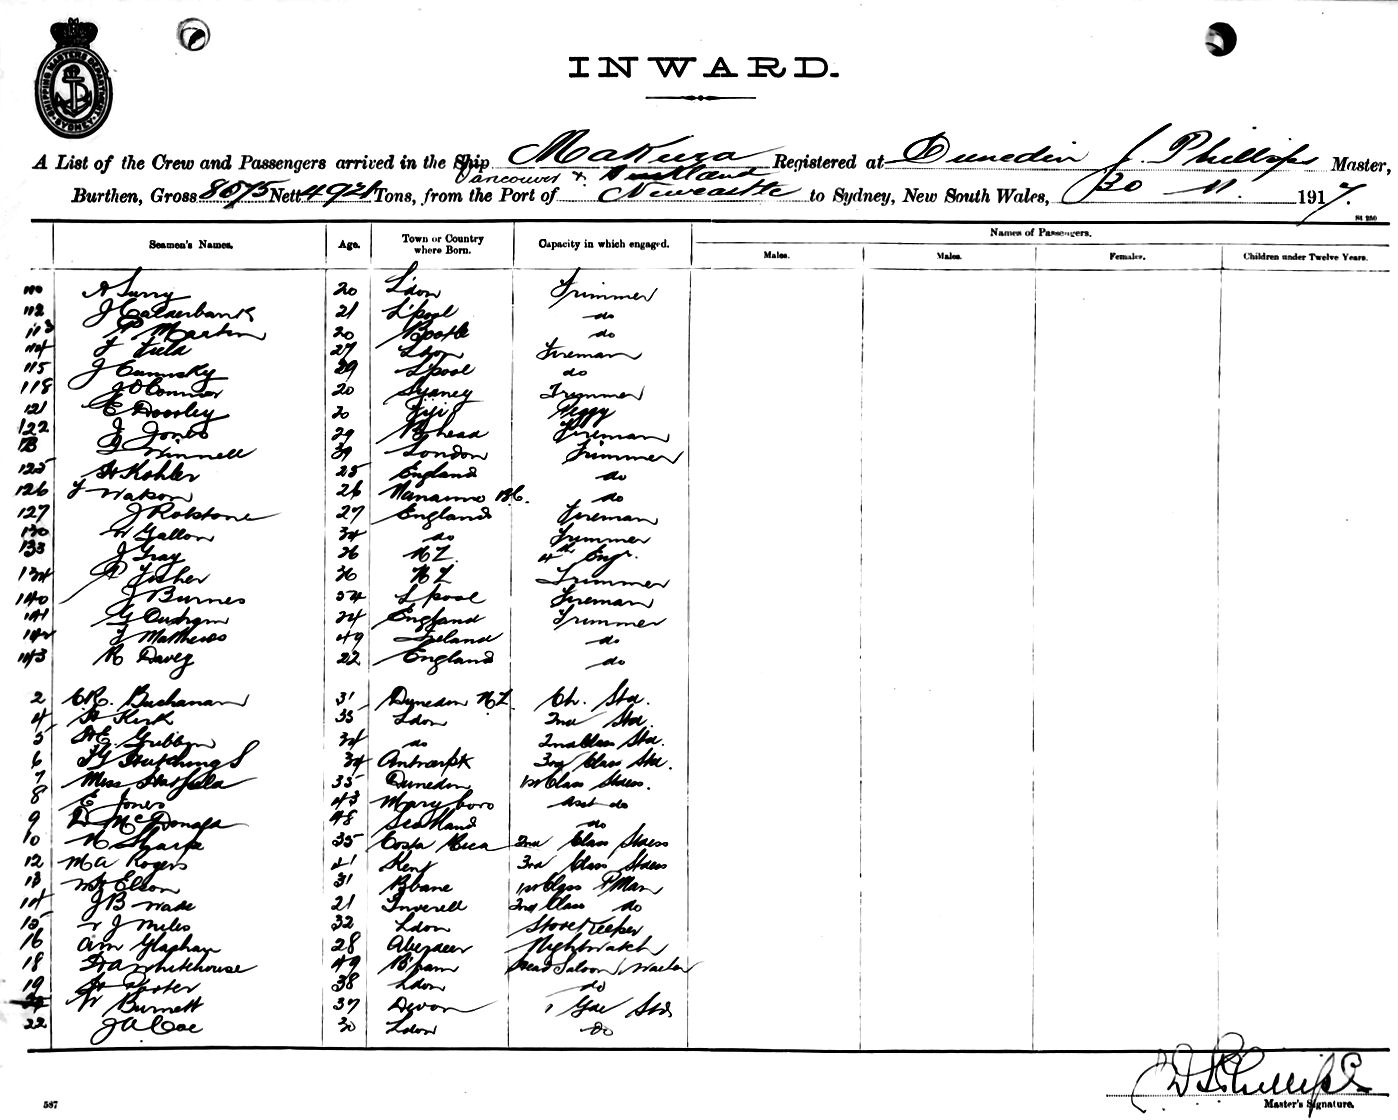 SHIPPING MASTERS DEPARTMENT SYDNEY
INWARD.
A List of the Crew and Passengers arrived in the Ship Makura Registered at Dunedin J. Phillips Master,
Vancouver & Auckland
Burthen, Gross 8075 Nett 4921 Tons, from the Port of Newcastle to Sydney, New South Wales, 30 11. 1917.
St 250
Names of Passengers.
Seamen's Names. Age. Town or Country where Born. Capacity in which engaged. Males. Males. Females. Children under Twelve Years.
110 A Surry 20 L'don Trimmer
112 J Calderbank 21 L'pool do
113 P Martin 20 Bootle do
114 F Field 27 Ldon Fireman
115 J 29 L'pool do
118 J O'Connor 20 Sydney Trimmer
121 E Doorley 20 Fiji Peggy
122 J Jones 29 B'head Fireman
Winnell 39 London Trimmer
125 H Kohler 25 England do
126 F Watson 26 Nanaimo B.C. do
127 J Rolstone 27 England Fireman
130 W Gallon 34 do Trimmer
133 J Gray 26 NZ. 4th Engr.
134 P Fisher 36 NZ Trimmer
140 J Burnes 54 L'pool Fireman
141 G 24 England Trimmer
142 F Matthews 49 Ireland do
143 R Davey 22 England do
2 C.R. Buchanan 31 Dunedin NZ. Ch. Std.
4 H Kirk 33 Ldon 2nd Std.
5 34 do 2nd Class Std.
6 Hutchings 34 3rd Class Std.
7 Miss Hatfield 35 Dunedin 1st Class Stdess.
8 E Jones 43 Maryboro Asst do
9 D McDonald 48 Scotland do
10 N Sharp 35 Costa Rica 2nd Class Stdess
12 M A Rogers 41 Kent 3rd Class Stdess
13 W H Elson 31 B'bane 1st Class P'Man
14 J B Wade 21 Inverell 2nd Class do
15 W J Miles 32 Ldon Storekeeper
16 Wm Glashan 28 Aberdeen Nightwatch
18 Whitehouse 49 B'ham Head Saloon Waiter
19 H Porter 38 Ldon do
W Burnett 37 Devon 1 Gde Std
22 J A Coe 30 Ldon do
J D S Phillips
Master's Signature.
587